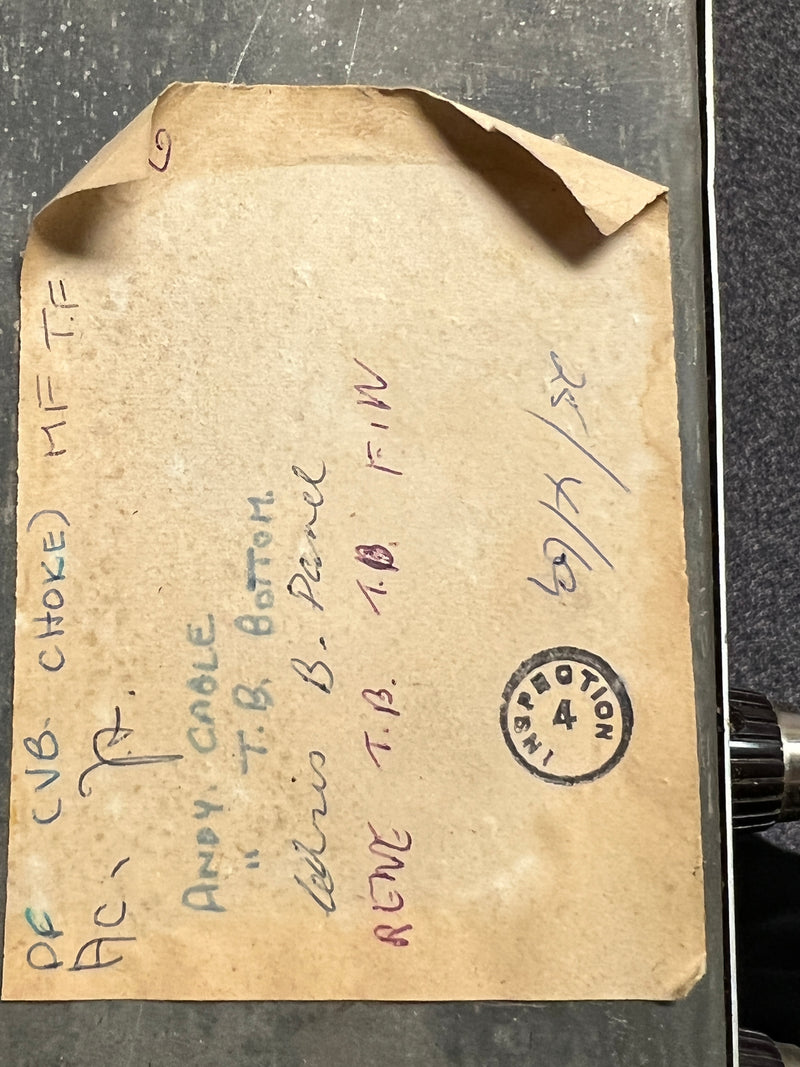 DF (VB. CHOKE) MF T.F
AC,
ANDY CABLE
" T.B. BOTTOM.
Chris B. Panel
RENE T.B. T.B. FIN
INSPECTION
4
25/4/69